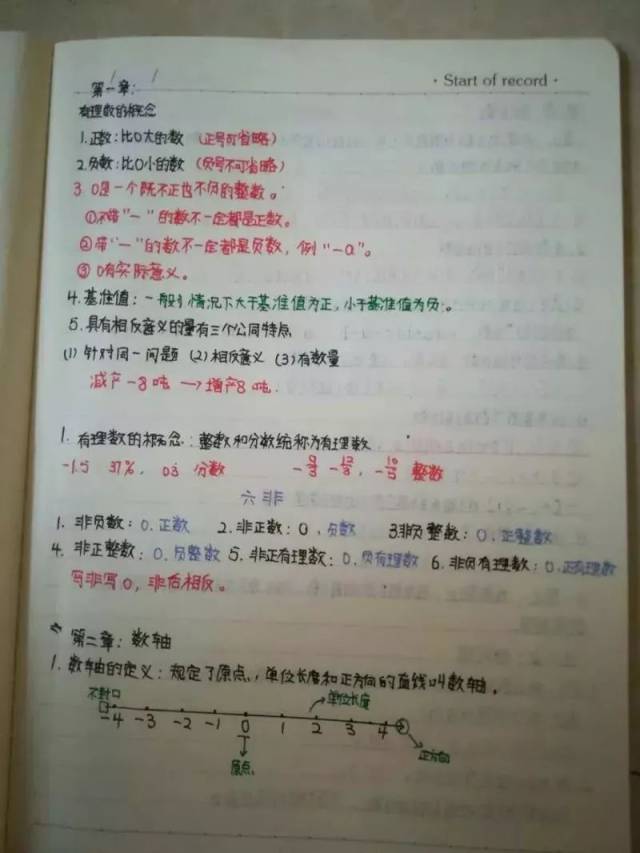 · Start of record ·
第一章:
有理数的概念
1.正数:比0大的数 (正号可省略)
2.负数:比0小的数 (负号不可省略)
3. 0是一个既不正也不负的整数。
①不带"-"的数不一定都是正数。
②带"-"的数不一定都是负数,例"-a"。
③ 0有实际意义。
4.基准值:一般情况下大于基准值为正,小于基准值为负。
5.具有相反意义的量有三个公同特点
(1) 针对同一问题 (2)相反意义 (3)有数量
减产-8吨 → 增产8吨.
1. 有理数的概念:整数和分数统称为有理数
-1.5 37%, 0.3 分数 整数
六非
1. 非负数:0.正数 2.非正数:0,负数 3.非负整数:0.正整数
4. 非正整数:0.负整数 5.非正有理数:0.负有理数 6.非负有理数:0.正有理数
写非写0,非后相反。
第二章:数轴
1.数轴的定义:规定了原点,单位长度和正方向的直线叫数轴。
不封口 单位长度
-4 -3 -2 -1 0 1 2 3 4
正方向
原点